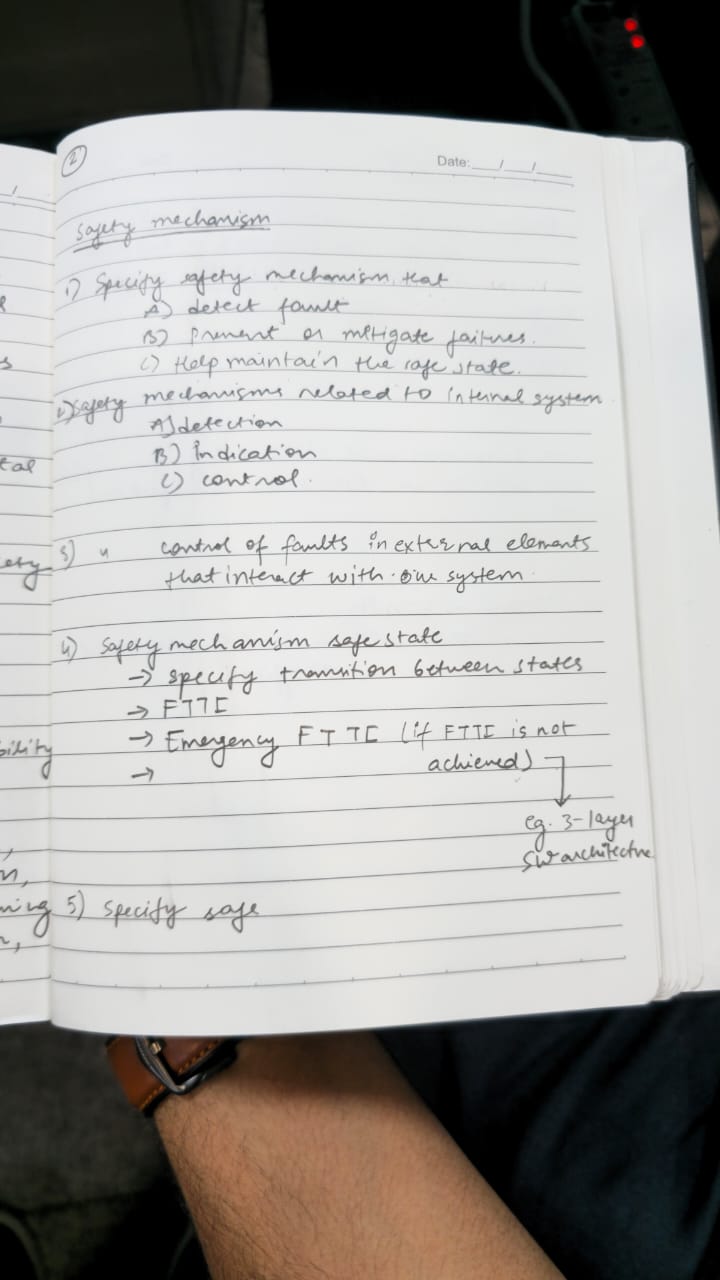 2
Date:___/___/___
Safety mechanism
1) Specify safety mechanism that
A) detect fault
B) Prevent or mitigate failures.
C) Help maintain the safe state.
2) Safety mechanisms related to internal system
A) detection
B) Indication
C) control.
3) " control of faults in external elements
that interact with our system
4) Safety mechanism safe state
→ specify transition between states
→ FTTI
→ Emergency FTTI (if FTTI is not
achieved)
→
eg. 3-layer
SW architecture
5) Specify safe
tal
bility